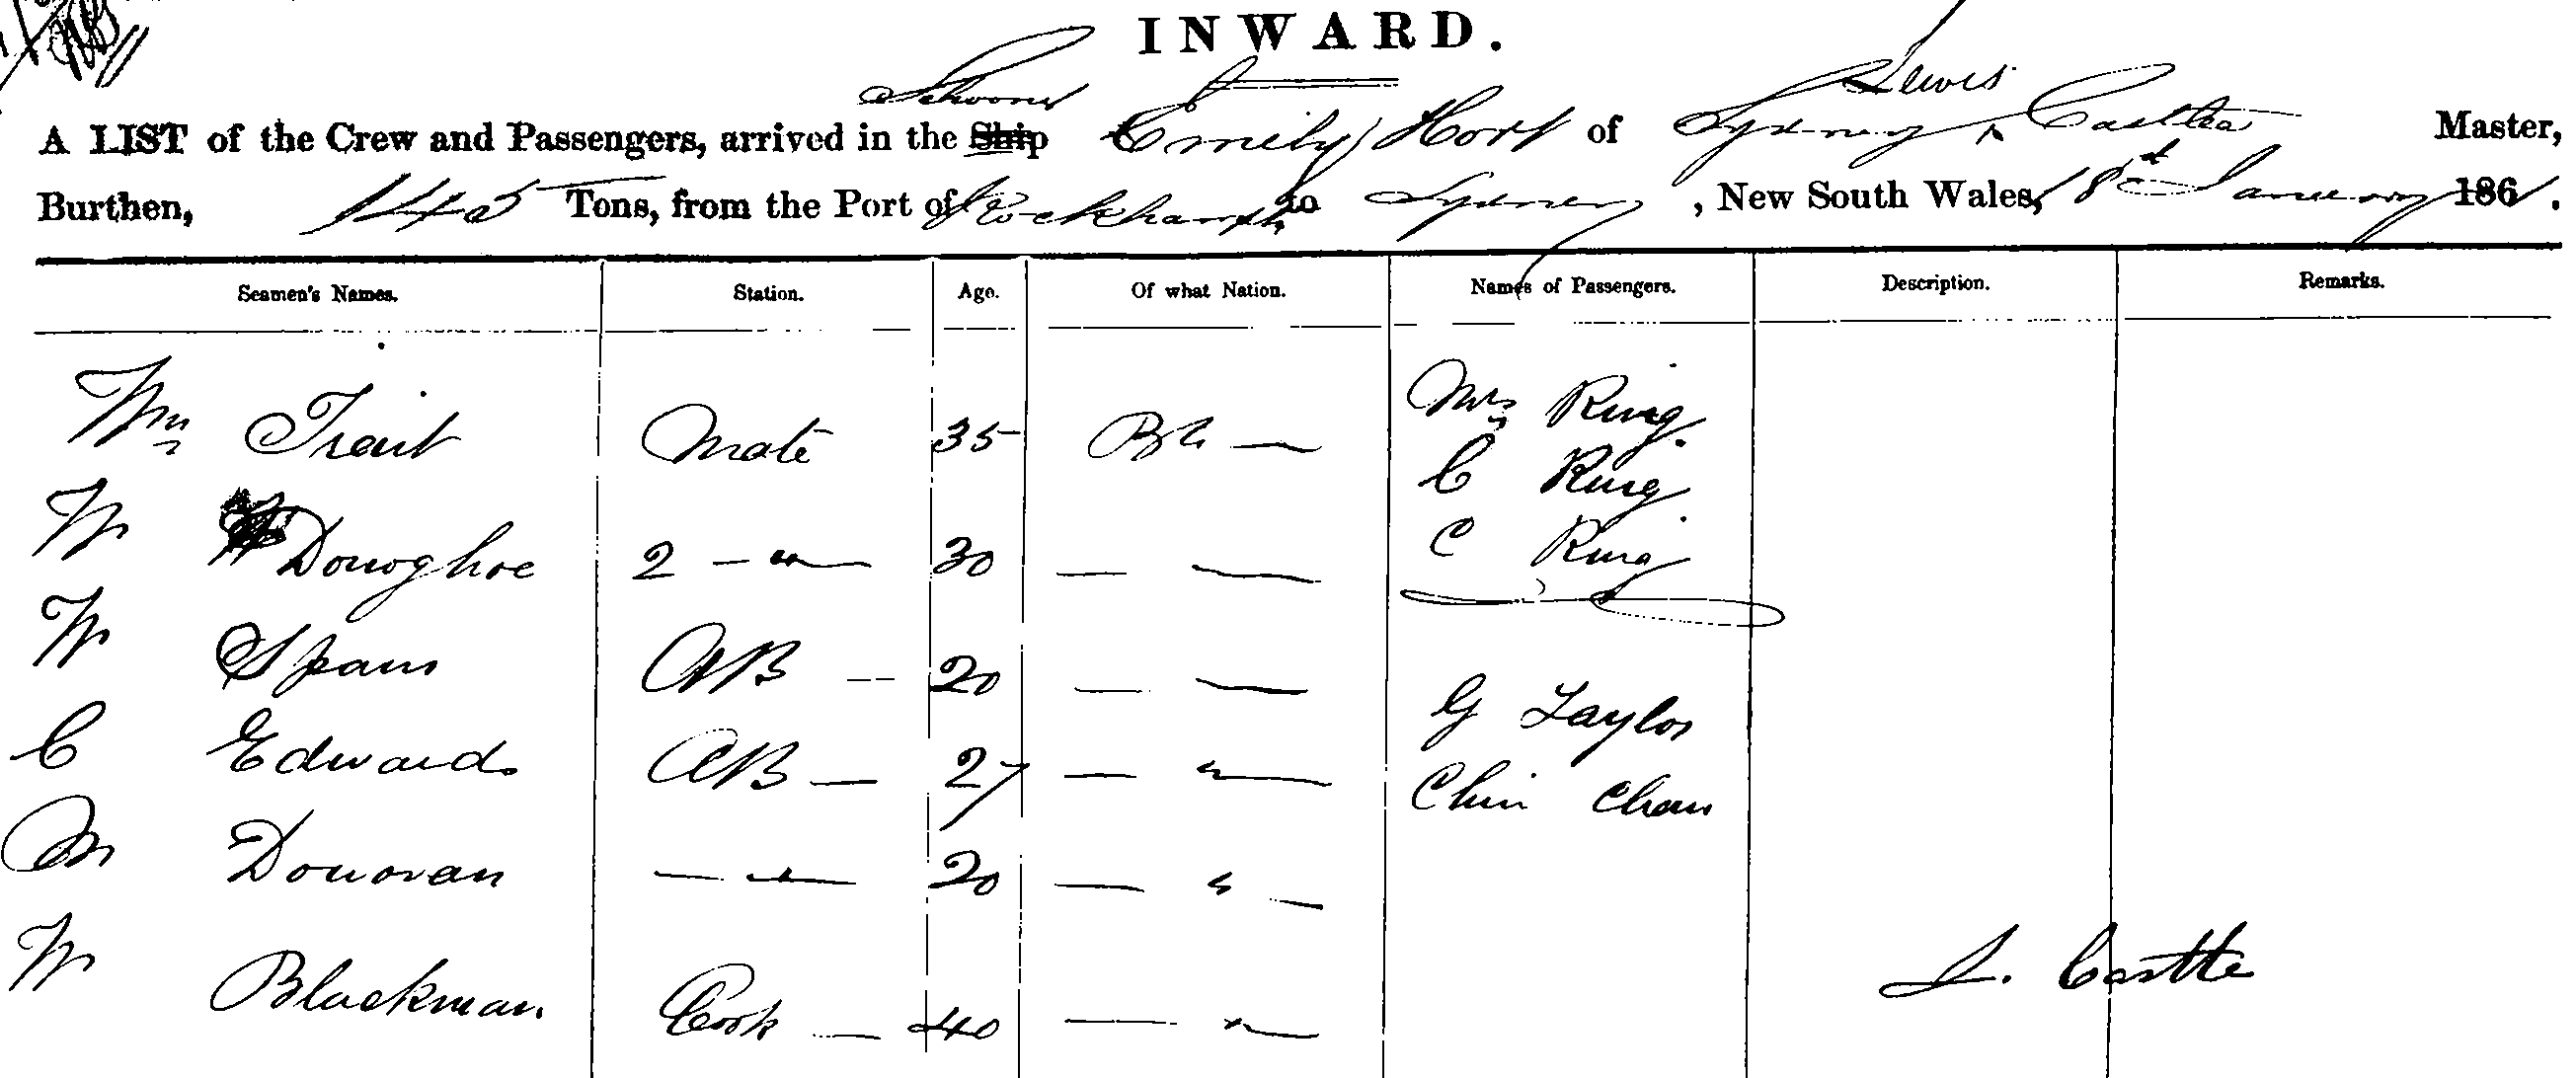 INWARD.
Schooner Lewis
A LIST of the Crew and Passengers, arrived in the Ship Emily Hort of Sydney Castle Master,
Burthen, 145 Tons, from the Port of Rockhampton to Sydney, New South Wales, 18 January 1861.
Seamen's Names. Station. Age. Of what Nation. Names of Passengers. Description. Remarks.
Mrs Ring.
Wm Trait Mate 35 Bh —
C Ring
W Donoghoe 2 — " — 30 — — C Ring
W Spans AB — 20 — —
G Taylor
C Edwards AB — 27 — " —
Chin Chan
M Donovan — " — 20 — " —
W Blackman. Cook — 40 — " — L. Castle